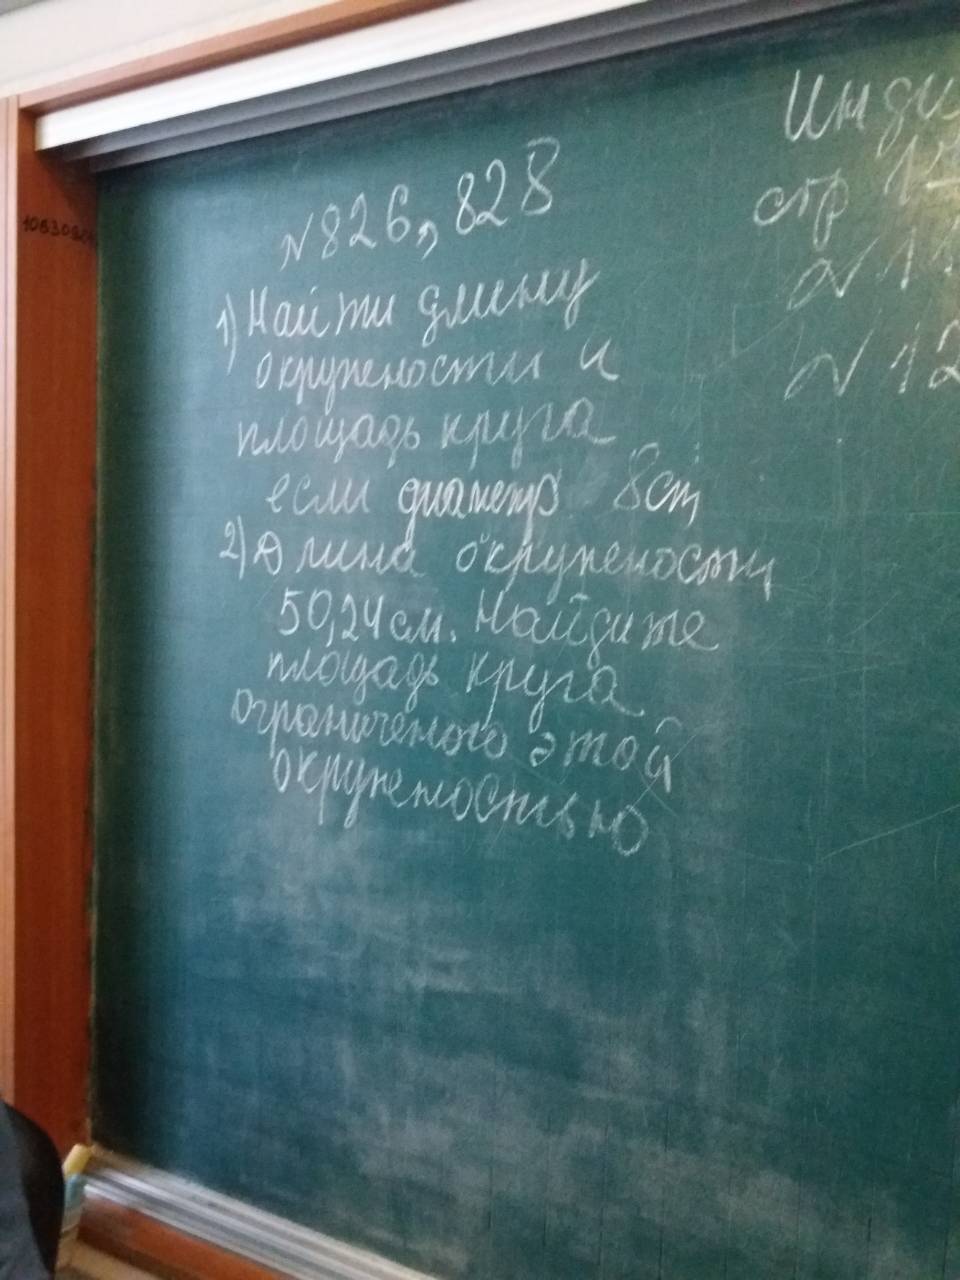 №826, 828
1) Найти длину
окружености и
площадь круга
если диаметр 8см
2) Длина окружености
50,24 см. Найдите
площадь круга
ограниченого этой
окруженостью
Инди
стр 1
№ 1
№ 12